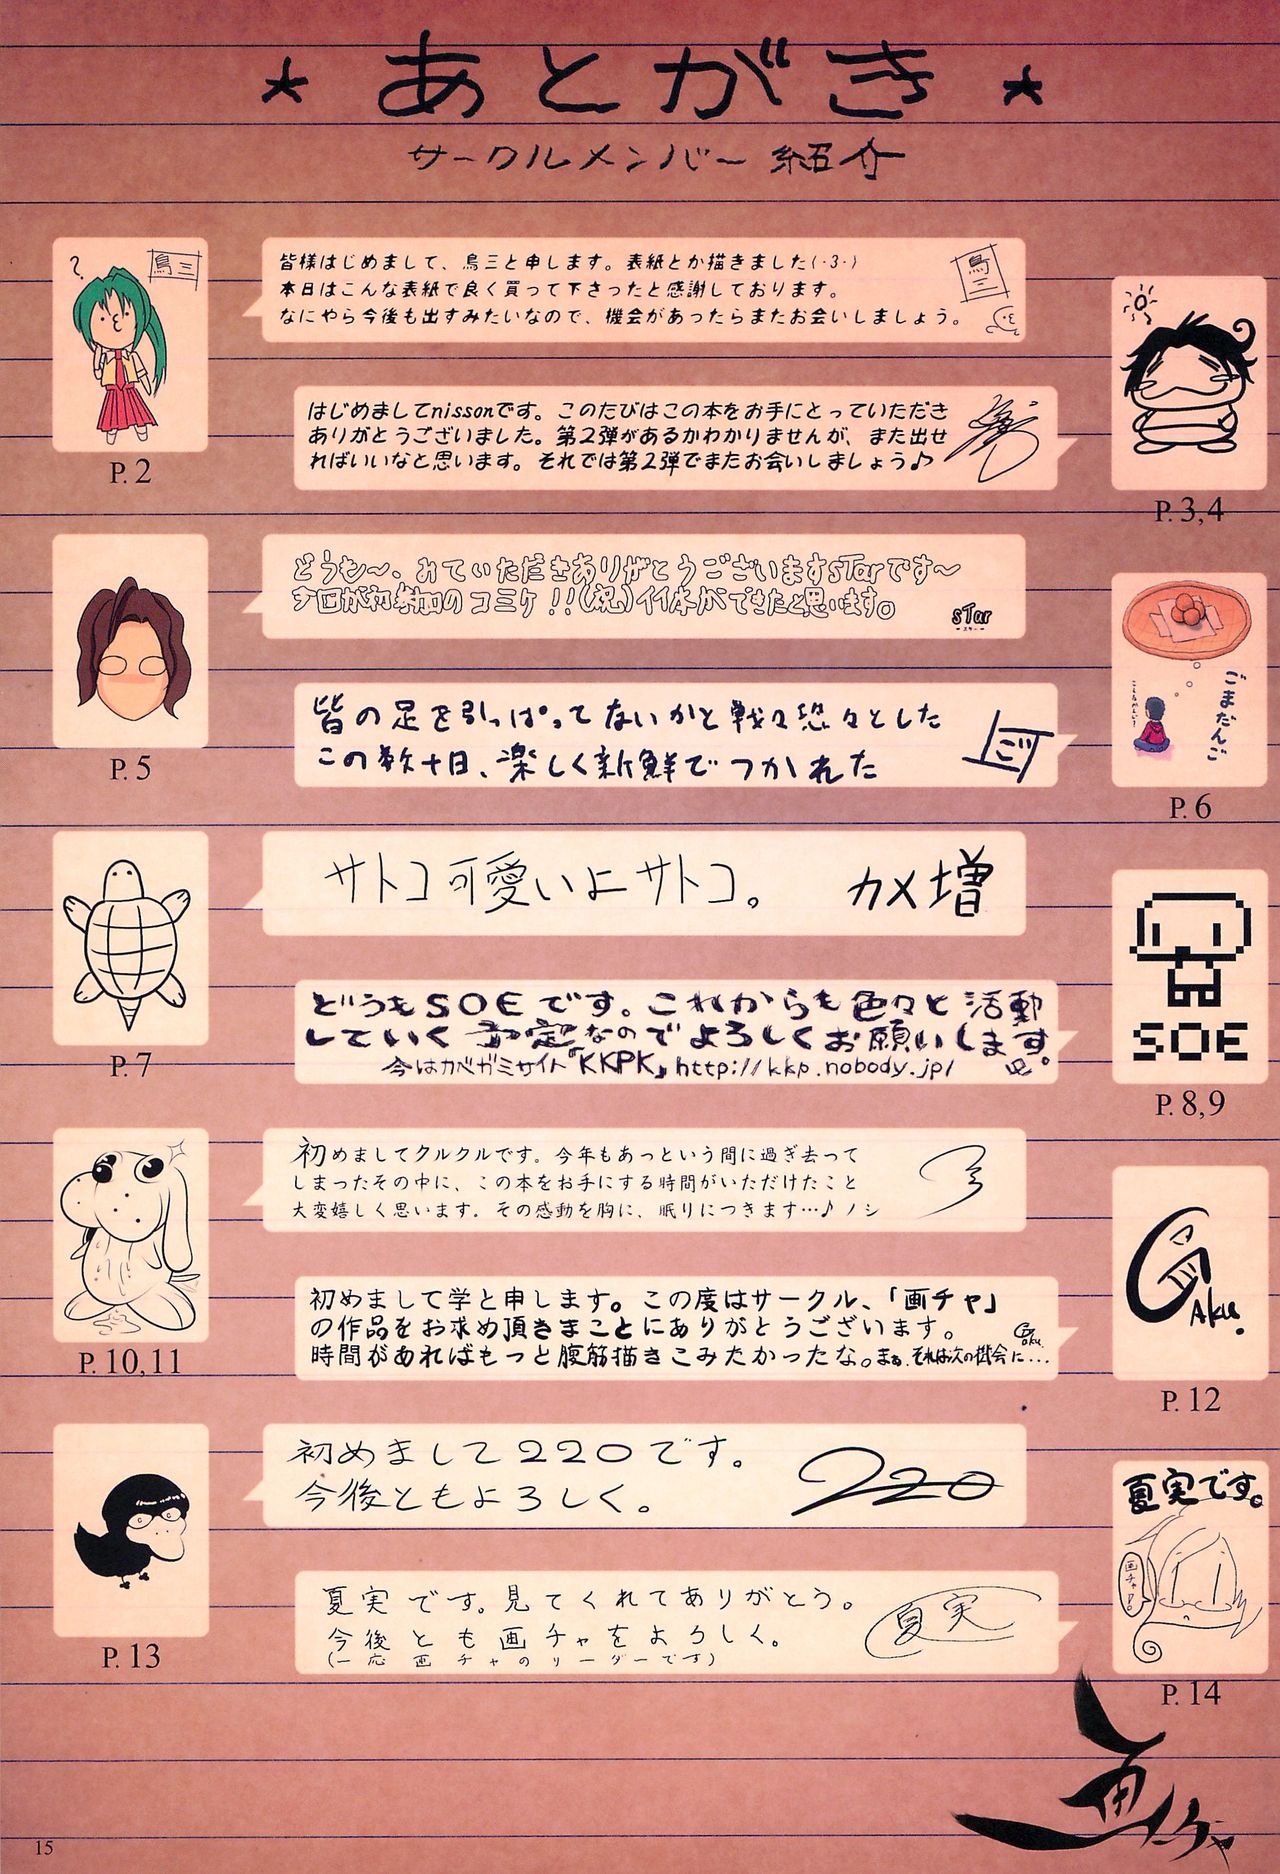 ★ あとがき ★
サークルメンバー紹介
?
鳥三
皆様はじめまして、鳥三と申します。表紙とか描きました(・3・)
本日はこんな表紙で良く買って下さったと感謝しております。
なにやら今後も出すみたいなので、機会があったらまたお会いしましょう。
鳥三
P. 2
はじめましてnissonです。このたびはこの本をお手にとっていただき
ありがとうございました。第2弾があるかわかりませんが、また出せ
ればいいなと思います。それでは第2弾でまたお会いしましょう♪
P. 3,4
どうも〜、みていただきありがとうございますsTarです〜
今回が初参加のコミケ!!(祝)イイ本ができたと思います。
sTar
-スター-
P. 5
皆の足を引っぱってないかと戦々恐々とした
この数十日、楽しく新鮮でつかれた
ごまだんご
P. 6
サトコ可愛いよサトコ。
カメ増
P. 7
どうもSOEです。これからも色々と活動
していく予定なのでよろしくお願いします。
今はカベガミサイト『KKPK』http://kkp.nobody.jp/
SOE
P. 8,9
初めましてクルクルです。今年もあっという間に過ぎ去って
しまったその中に、この本をお手にする時間がいただけたこと
大変嬉しく思います。その感動を胸に、眠りにつきます…♪ノシ
P. 10,11
初めまして学と申します。この度はサークル、「画チャ」
の作品をお求め頂きまことにありがとうございます。
時間があればもっと腹筋描きこみたかったな。まぁ、それは次の機会に...
Gaku.
GAku.
P. 12
初めまして220です。
今後ともよろしく。
220
P. 13
夏実です。見てくれてありがとう。
今後とも画チャをよろしく。
(一応画チャのリーダーです)
夏実
夏実です。
P. 14
画チャ
15